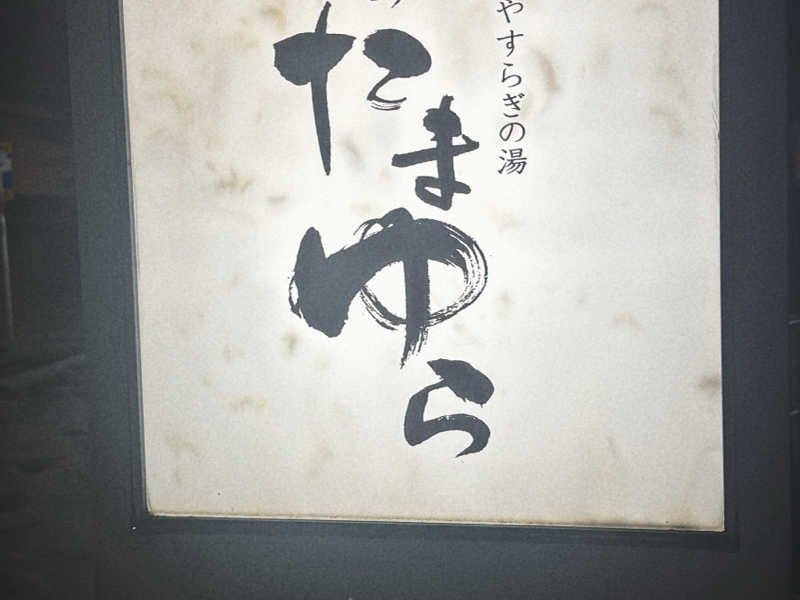 やすらぎの湯
たまゆら